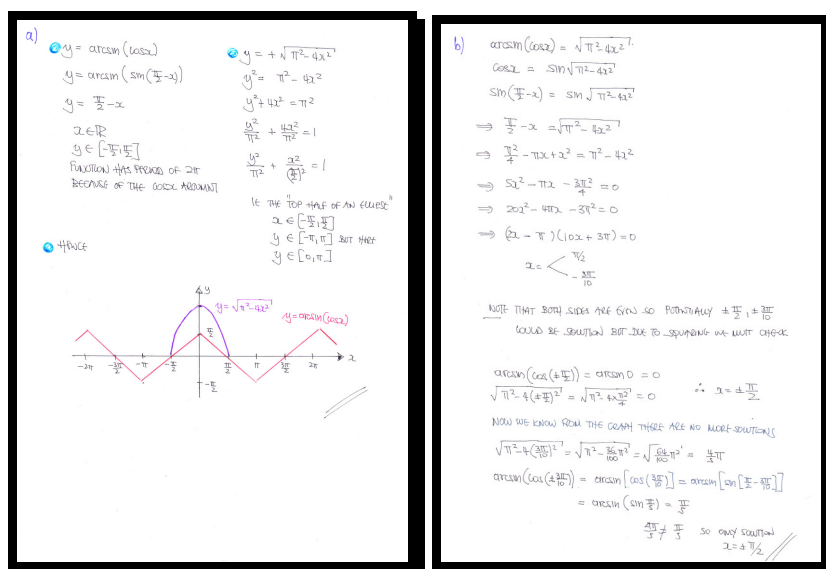 a)
y = arcsin(cosx)
y = arcsin(sin(π/2-x))
y = π/2 - x
x∈ℝ
y∈[-π/2,π/2]
FUNCTION HAS PERIOD OF 2π
BECAUSE OF THE COSX ARGUMENT
y = + √(π²-4x²)
y² = π² - 4x²
y²+4x² = π²
y²/π² + 4x²/π² = 1
y²/π² + x²/(π/2)² = 1
IE THE "TOP HALF OF AN ELLIPSE"
x ∈ [-π/2,π/2]
y ∈ [-π,π] BUT HERE
y ∈ [0,π]
HENCE
y
y = √(π²-4x²)
y = arcsin(cosx)
π/2
-2π -3π/2 -π -π/2 π/2 π 3π/2 2π x
-π/2
b)
arcsin(cosx) = √(π²-4x²)
cosx = sin√(π²-4x²)
sin(π/2-x) = sin√(π²-4x²)
⇒ π/2 - x = √(π²-4x²)
⇒ π²/4 - πx + x² = π² - 4x²
⇒ 5x² - πx - 3π²/4 = 0
⇒ 20x² - 4πx - 3π² = 0
⇒ (2x - π)(10x + 3π) = 0
x = < π/2
-3π/10
NOTE THAT BOTH SIDES ARE EVEN SO POTENTIALLY ±π/2, ±3π/10
COULD BE SOLUTION BUT DUE TO SQUARING WE MUST CHECK
arcsin(cos(±π/2)) = arcsin0 = 0
√(π²-4(±π/2)²) = √(π²-4×π²/4) = 0
∴ x = ±π/2
NOW WE KNOW FROM THE GRAPH THERE ARE NO MORE SOLUTIONS
√(π²-4(3π/10)²) = √(π²-36/100π²) = √(64/100π²) = 4/5π
arcsin(cos(±3π/10)) = arcsin[cos(3π/10)] = arcsin[sin[π/2-3π/10]]
= arcsin(sin π/5) = π/5
4π/5 ≠ π/5 SO ONLY SOLUTION
x = ±π/2